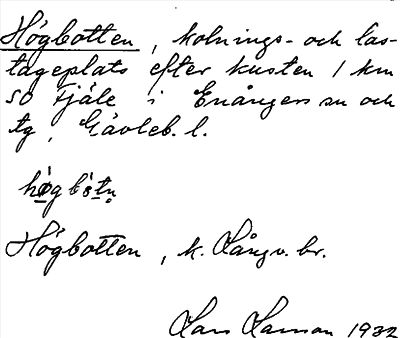 Högbotten, kolnings- och las-
tageplats efter kusten 1 km
SO Fjäle i Enångers sn och
tg, Gävleb. l.
Högbotten, k. Långv. br.
Lars Larsson 1932